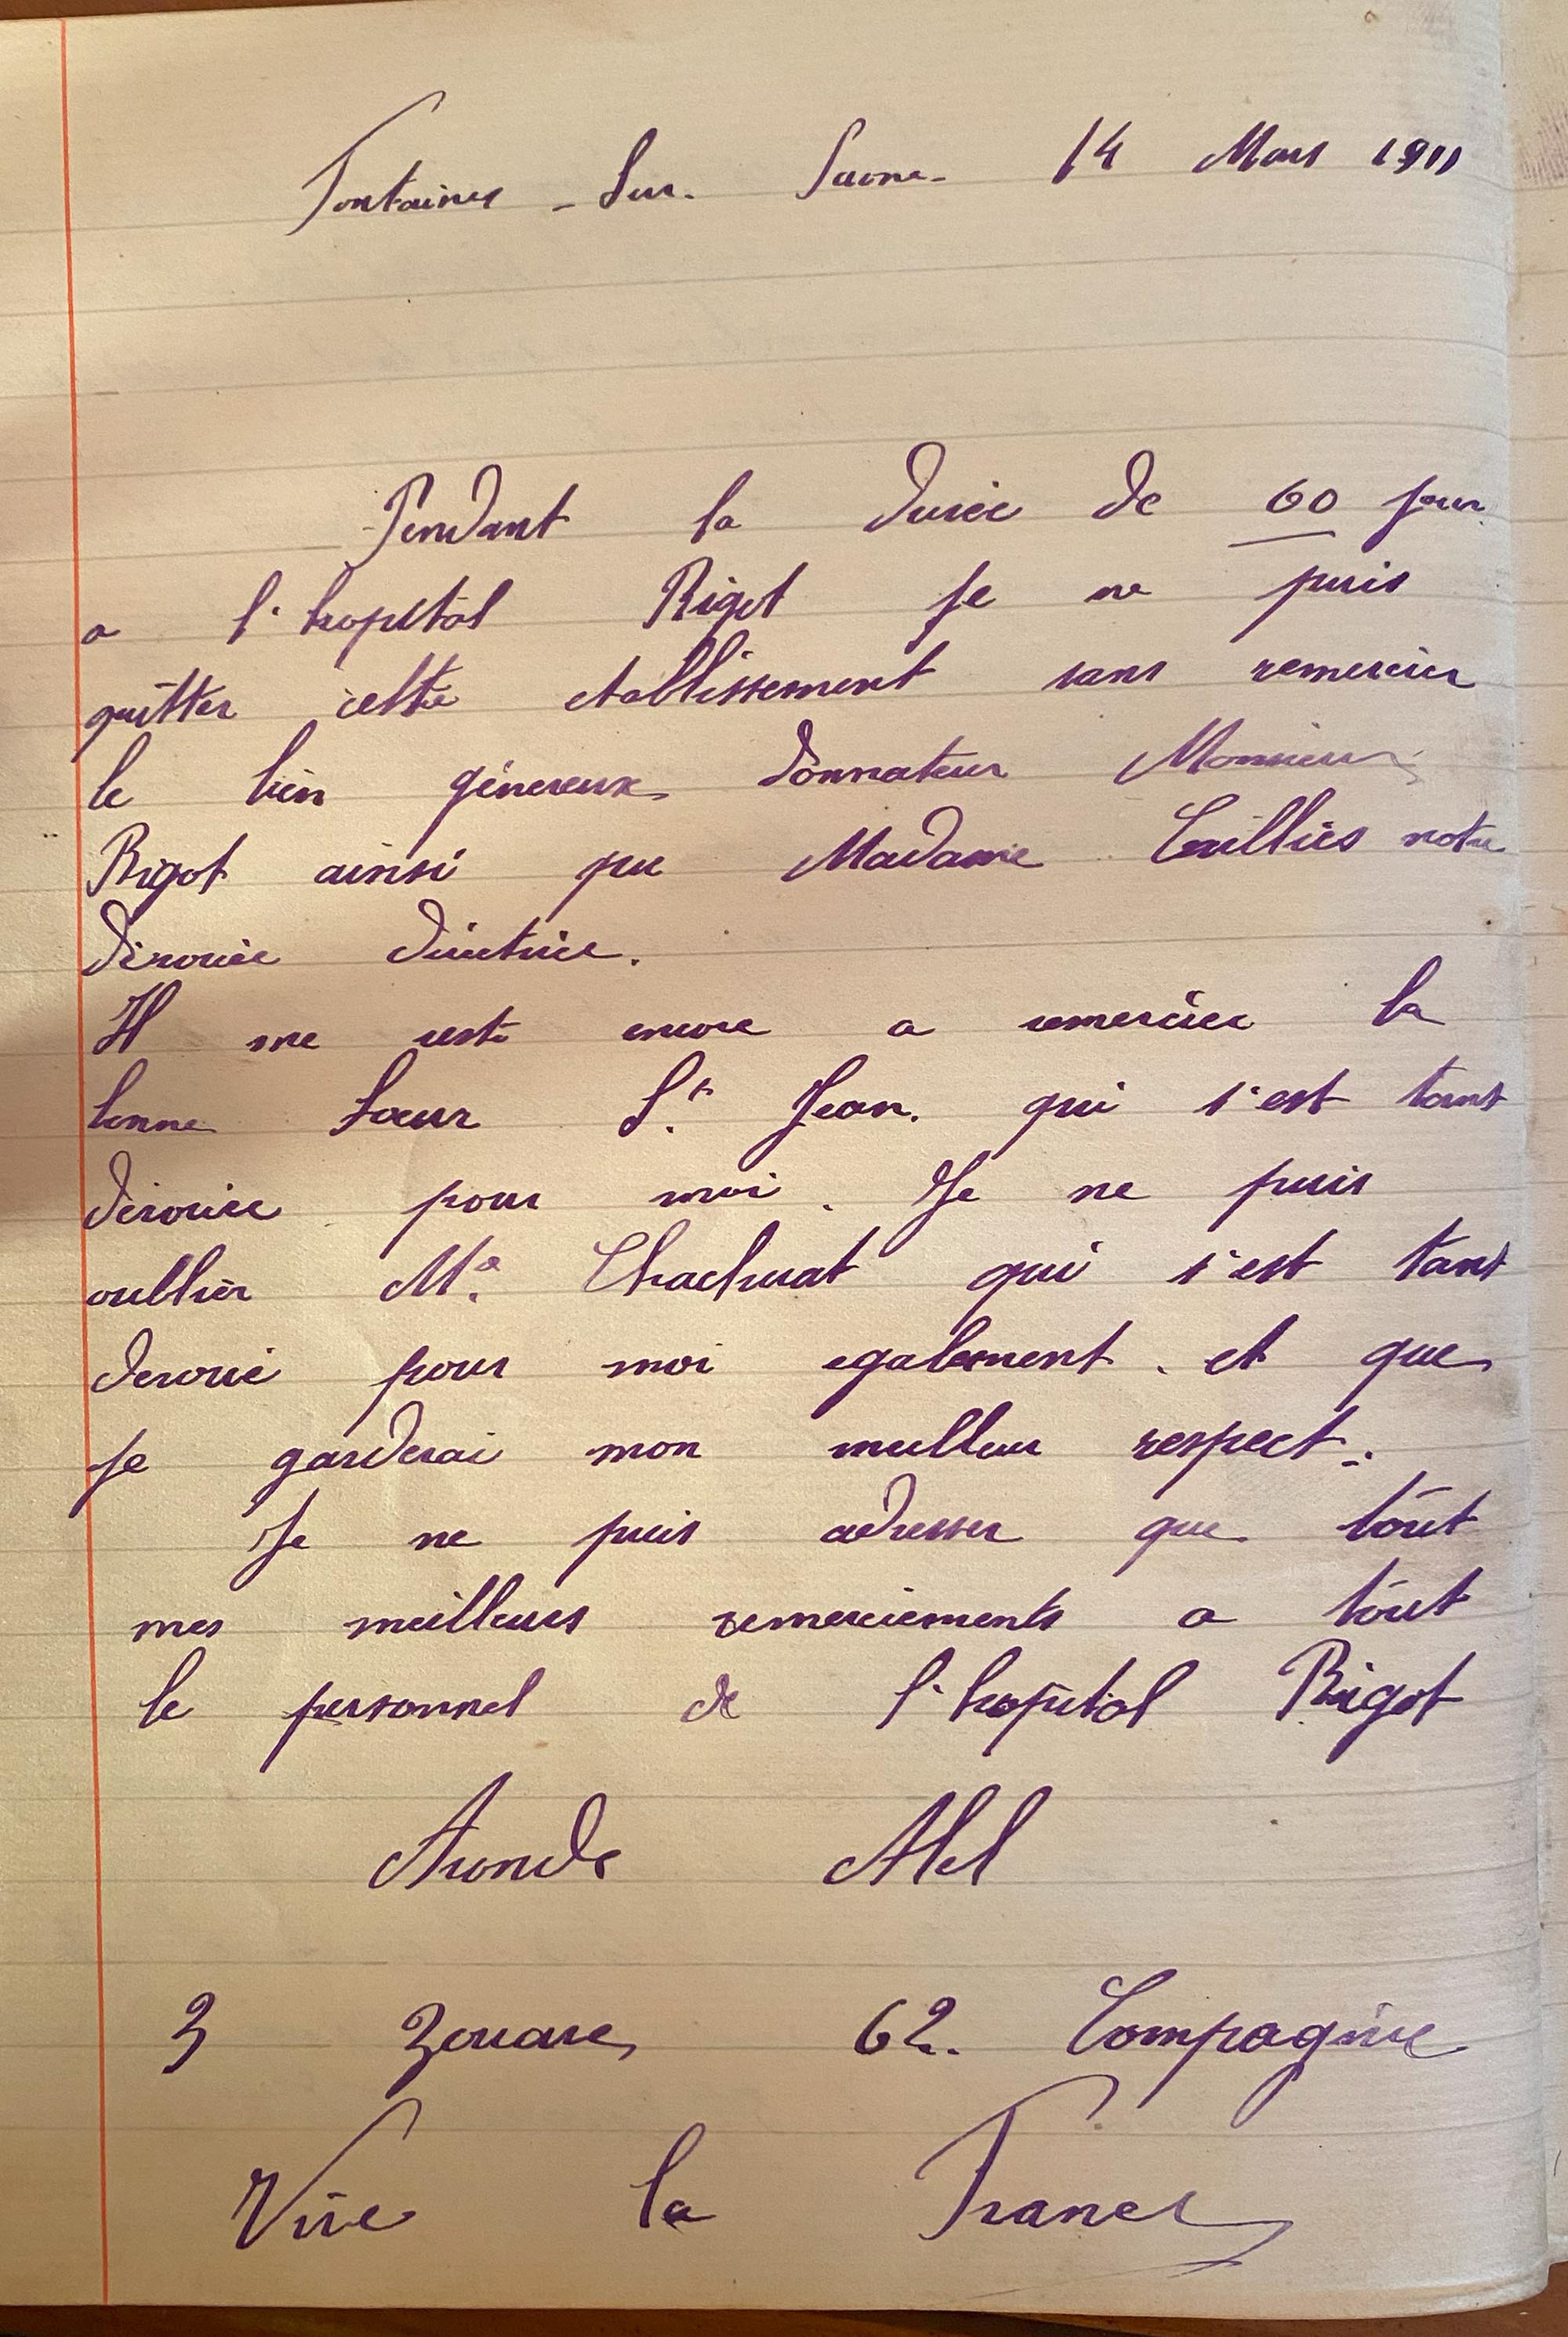 Fontaines - Sur. Saone - 14 Mars 1911
Pendant la durée de 60 jour
a l'hopital Rigot Je ne puis
quitter cette etablissement sans remercier
le bien génereux donnateur Monsieur
Rigot ainsi que Madame notre
dévouée directrice.
Il me reste encore a remercier la
bonne Sœur St. Jean. qui s'est tant
dévouée pour moi. Je ne puis
oublier Ma. Chachuat qui s'est tant
devoué pour moi egalement. et que
je garderai mon meilleur respect.
Je ne puis adresser que tout
mes meilleurs remerciements a tout
le personnel de l'hopital Rigot
Abel
3 Zouave 62. Compagnie
Vive la France